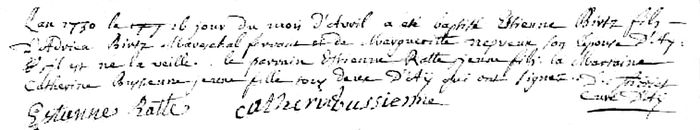 L'an 1730 le 16 jour du mois D'Avril a eté baptisé Etienne Birtz fils
D'Adrien Birtz Mareschal ferrant et de Marguerite nepveux son Epouse D'Aÿ.
il est né la veille. le parrain Estienne Ratte jeune fils. la Marraine
Catherine Bussienne jeune fille tous deux D'Aÿ qui ont signes.
Curé D'Aÿ
Estienne Ratte Catherin bussienne